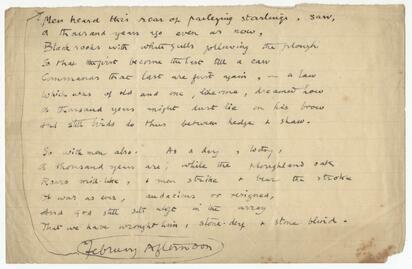 Men heard this roar of parleying starlings, saw,
A thousand years ago even as now,
Black rooks with white gulls following the plough
So that the first become the last till a caw
Commands that last are first again, — a law
Which was of old and one, like me, dreamed how
A thousand years might dust lie on his brow
And still birds do thus between hedge & shaw.
So with men also. As a day, today,
A thousand years are, while the ploughland oak
Roars mill-like, & men strike & bear the stroke
O war as ever, audacious or resigned,
And God still sits aloft in the array
That we have wrought him, stone-deaf & stone blind.
February Afternoon